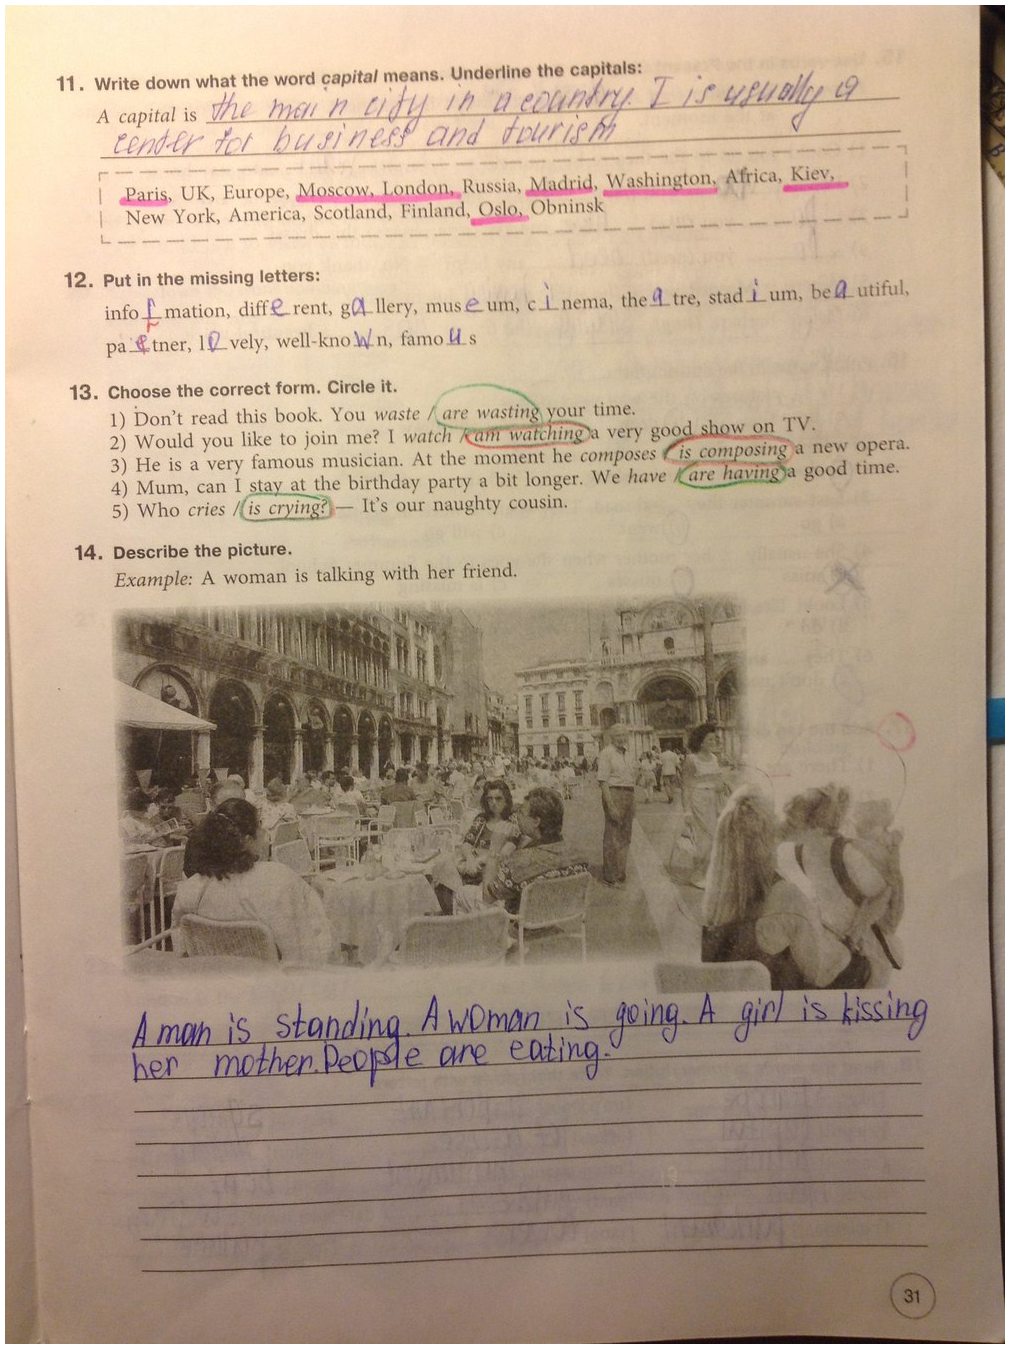 11. Write down what the word capital means. Underline the capitals:
A capital is the main city in a country. I is usually a
center for business and tourism
Paris, UK, Europe, Moscow, London, Russia, Madrid, Washington, Africa, Kiev,
New York, America, Scotland, Finland, Oslo, Obninsk
12. Put in the missing letters:
info r mation, diff e rent, g a llery, mus e um, c i nema, the a tre, stad i um, be a utiful,
pa r tner, l o vely, well-kno w n, famo u s
13. Choose the correct form. Circle it.
1) Don't read this book. You waste / are wasting your time.
2) Would you like to join me? I watch / am watching a very good show on TV.
3) He is a very famous musician. At the moment he composes / is composing a new opera.
4) Mum, can I stay at the birthday party a bit longer. We have / are having a good time.
5) Who cries / is crying? — It's our naughty cousin.
14. Describe the picture.
Example: A woman is talking with her friend.
A man is standing. A woman is going. A girl is kissing
her mother. People are eating.
31